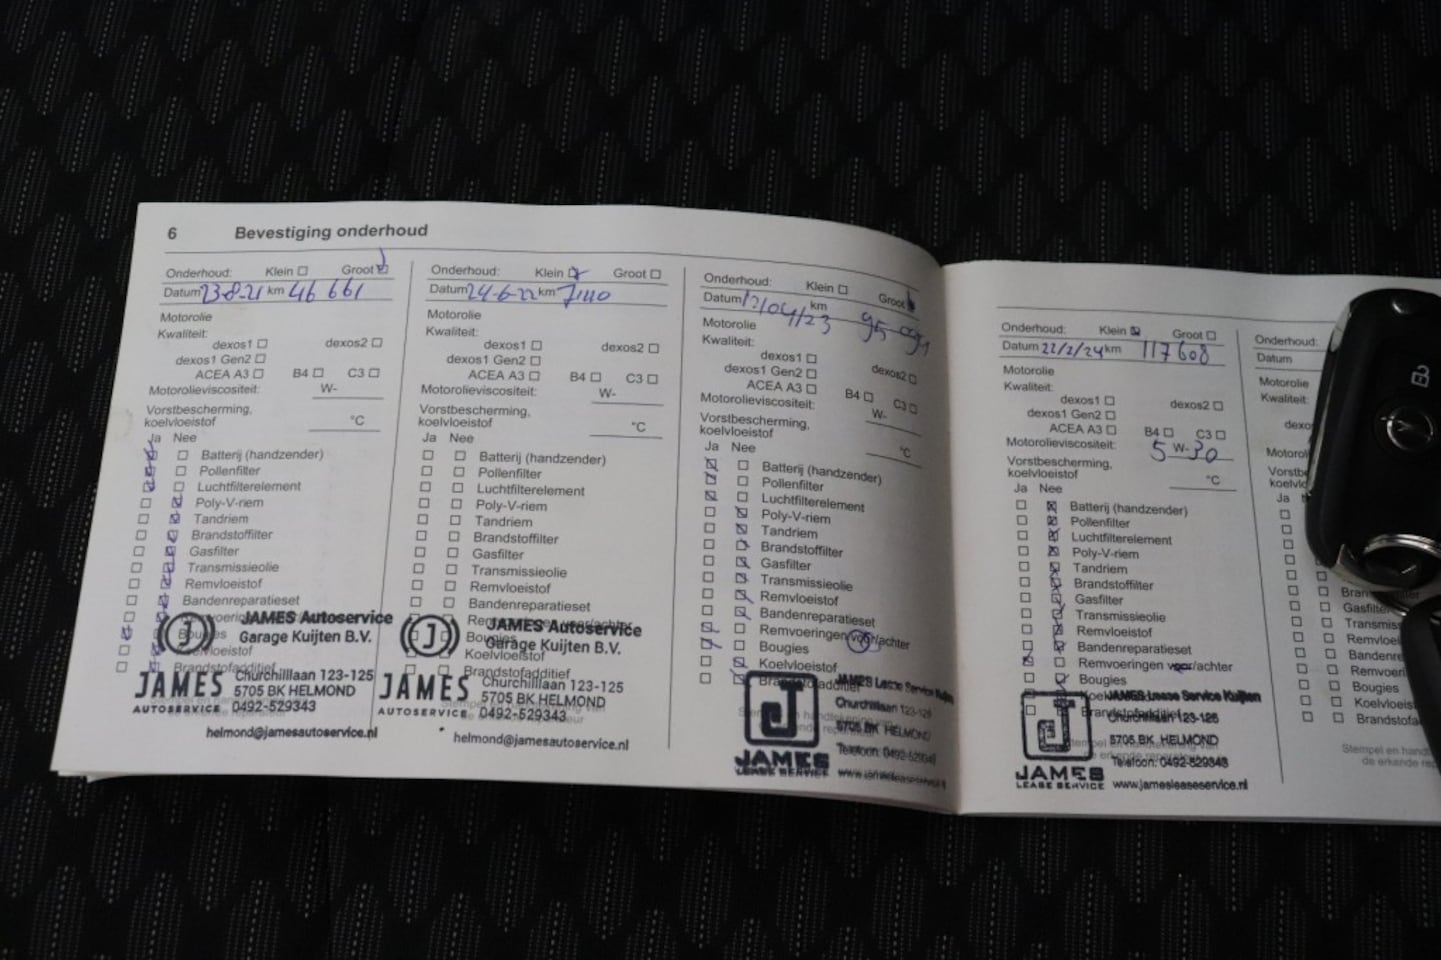 6 Bevestiging onderhoud
Onderhoud: Klein Groot
Datum 23-8-21 km 46 661
Motorolie
Kwaliteit:
dexos1 dexos2
dexos1 Gen2
ACEA A3 B4 C3
Motorolieviscositeit: W-
Vorstbescherming,
koelvloeistof °C
Ja Nee
Batterij (handzender)
Pollenfilter
Luchtfilterelement
Poly-V-riem
Tandriem
Brandstoffilter
Gasfilter
Transmissieolie
Remvloeistof
Bandenreparatieset
Bougies
Brandstofadditief
JAMES Autoservice
Garage Kuijten B.V.
JAMES
AUTOSERVICE
Churchilllaan 123-125
5705 BK HELMOND
0492-529343
helmond@jamesautoservice.nl
Onderhoud: Klein Groot
Datum 24-6-22 km
Motorolie
Kwaliteit:
dexos1 dexos2
dexos1 Gen2
ACEA A3 B4 C3
Motorolieviscositeit: W-
Vorstbescherming,
koelvloeistof °C
Ja Nee
Batterij (handzender)
Pollenfilter
Luchtfilterelement
Poly-V-riem
Tandriem
Brandstoffilter
Gasfilter
Transmissieolie
Remvloeistof
Bandenreparatieset
Bougies
Koelvloeistof
Brandstofadditief
JAMES Autoservice
Garage Kuijten B.V.
JAMES
AUTOSERVICE
Churchilllaan 123-125
5705 BK HELMOND
0492-529343
helmond@jamesautoservice.nl
Onderhoud: Klein Groot
Datum 12/04/23 km
Motorolie
Kwaliteit:
dexos1 dexos2
dexos1 Gen2
ACEA A3 B4 C3
Motorolieviscositeit: W-
Vorstbescherming,
koelvloeistof °C
Ja Nee
Batterij (handzender)
Pollenfilter
Luchtfilterelement
Poly-V-riem
Tandriem
Brandstoffilter
Gasfilter
Transmissieolie
Remvloeistof
Bandenreparatieset
Remvoeringen voor/achter
Bougies
Koelvloeistof
Brandstofadditief
JAMES Lease Service Kuijten
Churchilllaan 123-125
5705 BK HELMOND
Telefoon: 0492-529343
www.jamesleaseservice.nl
JAMES
LEASE SERVICE
Onderhoud: Klein Groot
Datum 22/2/24 km 117608
Motorolie
Kwaliteit:
dexos1 dexos2
dexos1 Gen2
ACEA A3 B4 C3
Motorolieviscositeit: 5 W-30
Vorstbescherming,
koelvloeistof °C
Ja Nee
Batterij (handzender)
Pollenfilter
Luchtfilterelement
Poly-V-riem
Tandriem
Brandstoffilter
Gasfilter
Transmissieolie
Remvloeistof
Bandenreparatieset
Remvoeringen voor/achter
Bougies
Brandstofadditief
JAMES Lease Service Kuijten
Churchilllaan 123-125
5705 BK HELMOND
Telefoon: 0492-529343
www.jamesleaseservice.nl
JAMES
LEASE SERVICE
Onderhoud:
Datum
Motorolie
Kwaliteit:
dexo
Motorol
Vorstb
koelvl
Ja
Bran
Gasfilter
Transmiss
Remvloei
Bandenre
Remvoeri
Bougies
Koelvloeist
Brandstofa
Stempel en hand
de erkende rep